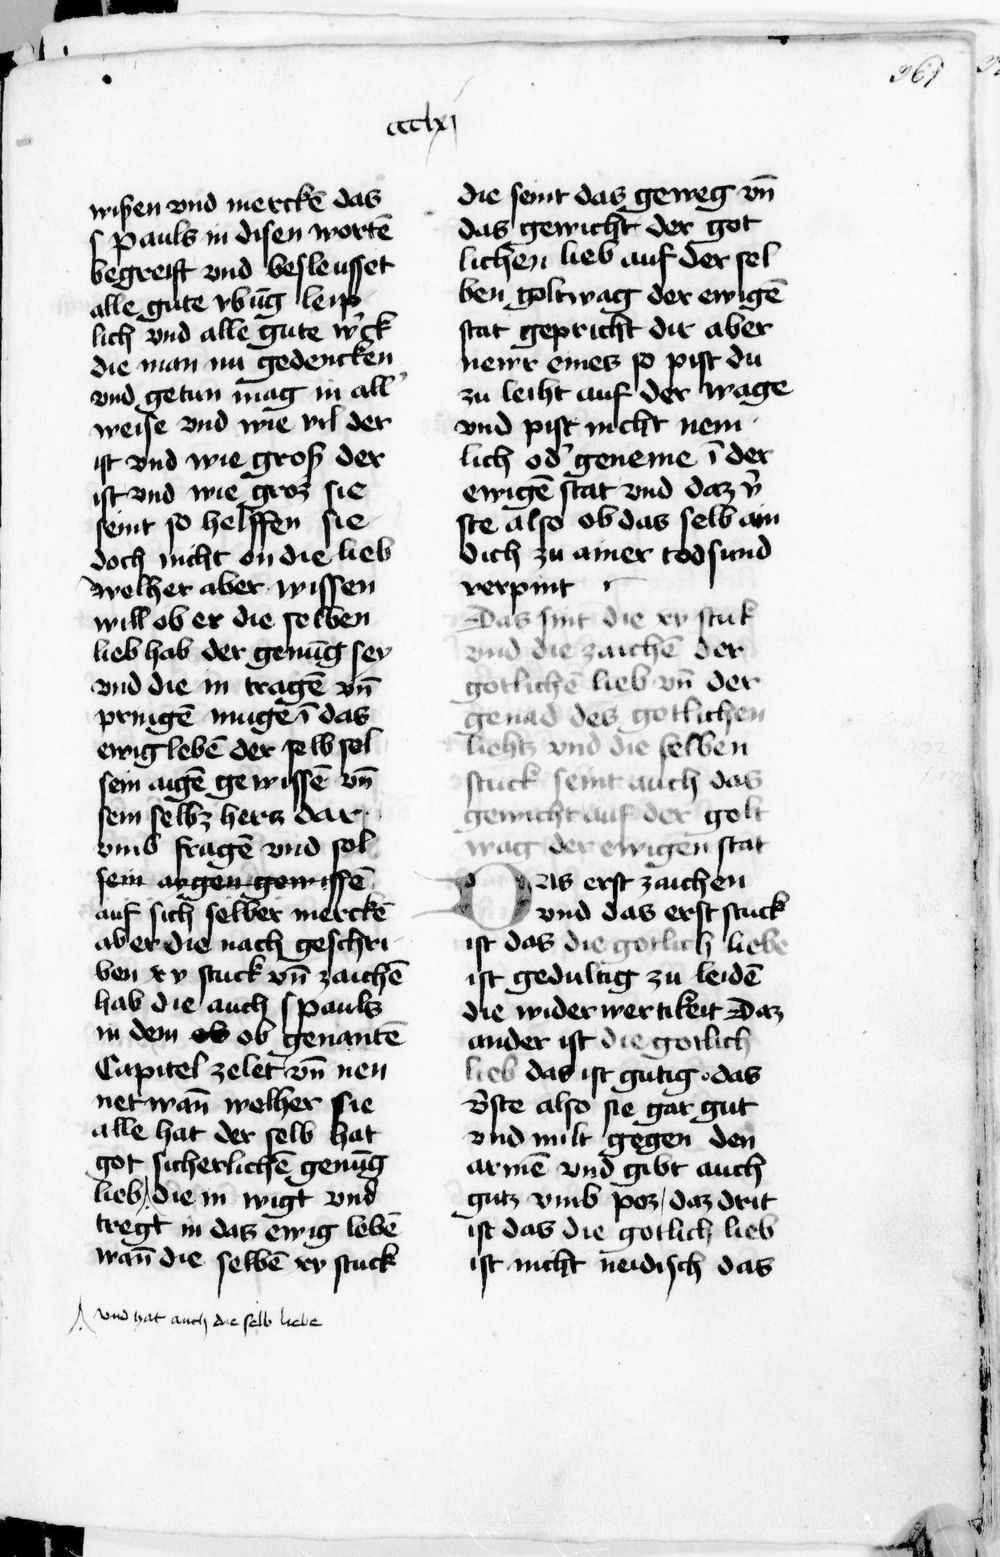 261
cclxi
wißen vnd merckē das
s pauls in disen wortē
begreift vnd besleusset
alle gute vbūg leip
lich vnd alle gute w̓ck
die man nu gedencken
vnd getun mag in all̓
weise vnd wie vil der
ist vnd wie groß der
ist vnd wie groz sie
seint so helffen sie
doch nicht on die lieb
welher aber wissen
will ob er die selben
lieb hab der genūg sey
vnd die in tragē vn̄
pringē mugē ī das
ewig lebē der selb sol
sein aigē gewissē vn̄
sein selbz hertz dar
vmb fragē vnd sol
sein aygen gewissē
auf sich selber merckē
aber die nach geschri
ben xv stuck vn̄ zaichē
hab die auch s pauls
in dem ob ob genantē
Capitel zelet vn̄ nen
net wan̄ welher sie
alle hat der selb hat
got sicherlichē genūg
lieb / die in wigt vnd
tregt in daz ewig lebē
wan̄ die selbē xv stuck
vnd hat auch die selb liebe
die seint das geweg vn̄
das gewicht der got
lichen lieb auf der sel
ben goltwag der ewigē
stat gepricht dir aber
newr eines so pist du
zu leiht auf der wage
vnd pist nicht nem
lich od̓ geneme ī der
ewigē stat vnd daz v̓
ste also ob das selb ain
dich zu ainer todsund
verpint
Das sint die xv stuk
vnd die zaichē der
gotlichē lieb vn̄ der
genad des gotlichen
liehtz vnd die selben
stuck seint auch das
gewicht auf der golt
wag der ewigen stat
Das erst zaichen
vnd das erst stuck
ist das die gotlich liebe
ist gedultig zu leidē
die widerwertikeit Daz
ander ist die gotlich
lieb das ist gutig das
v̓ste also sie gar gut
vnd milt gegen den
armē vnd gibt auch
gutz vmb poz / daz drit
ist das die gotlich lieb
ist nicht neidisch das